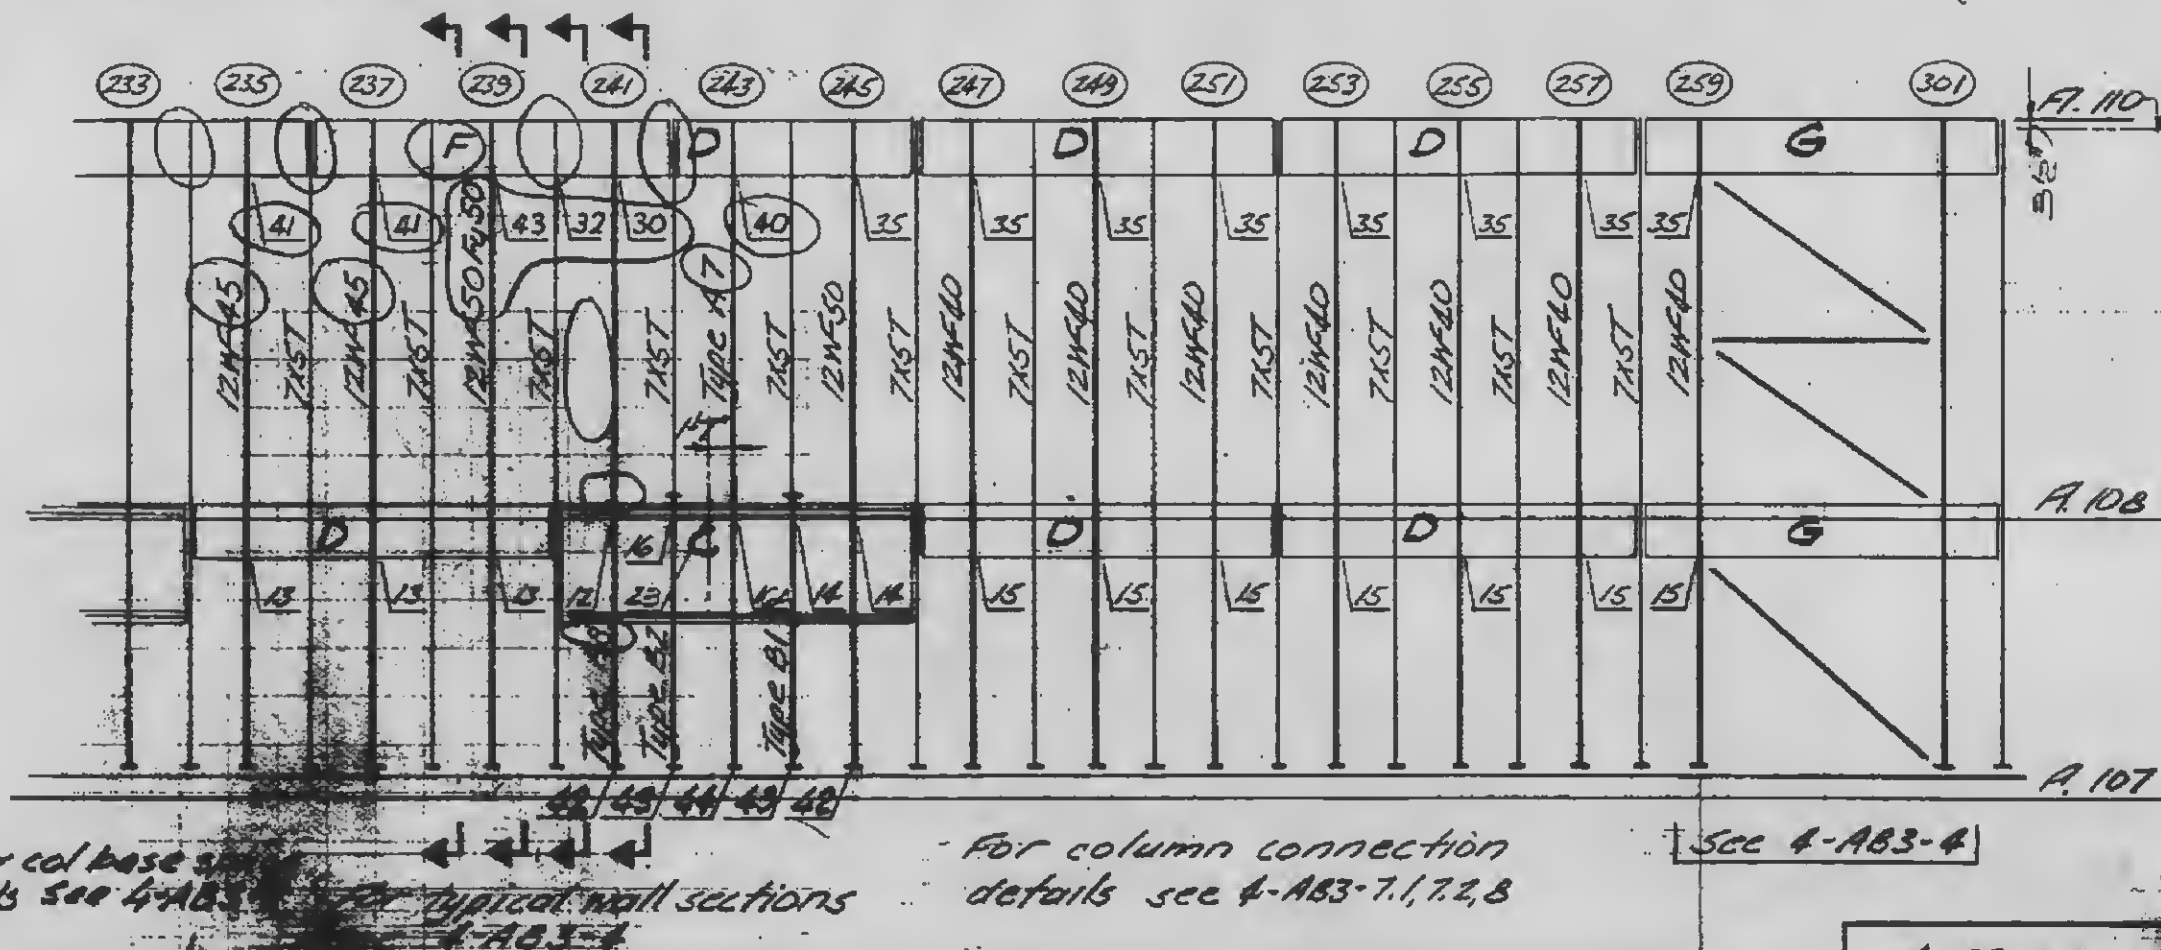 233 235 237 239 241 243 245 247 249 251 253 255 257 259 301
Fl. 110
F D D D G
41 41 43 32 30 40 35 35 35 35 35 35 35 35
12WF45 7X5T 12WF45 7X5T 12WF50 Fy50 7X5T 7X5T Type A7 7X5T 12WF50 7X5T 12WF40 7X5T 12WF40 7X5T 12WF40 7X5T 12WF40 7X5T 12WF40 7X5T 12WF40 7X5T 12WF40
Fl. 108
D C D D G
16
13 13 13 12 23 14 14 15 15 15 15 15 15 15
Type B2 Type B1
Fl. 107
43 44 43 42
col base
see
For typical wall sections
4-AB3-4
For column connection
details see 4-AB3-7.1, 7.2, 8
See 4-AB3-4